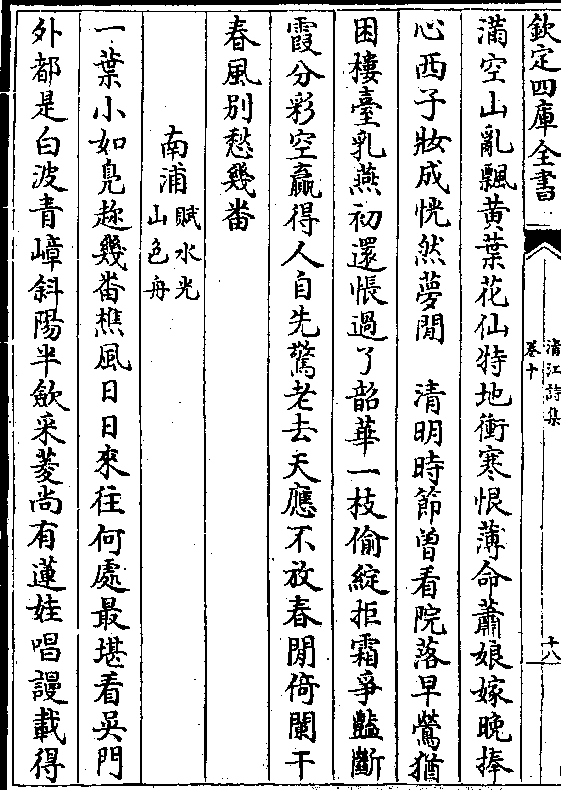 欽定四庫全書
清江詩集
卷十
十八
滿空山亂飄黄葉花仙特地衝寒恨薄命蕭娘嫁晚捧
心西子妝成恍然夢間　清明時節曽看院落早鶯猶
困樓臺乳燕初還悵過了韶華一枝偷綻拒霜爭豔斷
霞分彩空贏得人自先驚老去天應不放春閒倚闌干
春風别愁幾畨
南浦賦水光
山色舟
一葉小如鳬趂幾畨樵風日日來往何處最堪看吳門
外都是白波青嶂斜陽半歛采菱尚有蓮娃唱謾載得